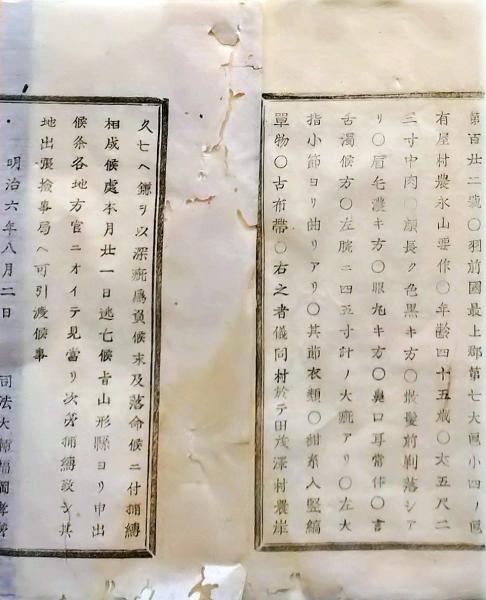 第百廿二號〇羽前國最上郡第七大區小四ノ區
有屋村農永山要作〇年齢四十五歳〇丈五尺二
三寸中肉〇顔長ク色黒キ方〇散髪前剃落シア
リ〇眉毛濃キ方〇眼丸キ方〇鼻口耳常体〇言
舌濁候方〇左腕ニ四五寸計ノ大疵アリ〇左大
指小節ヨリ曲リアリ〇其節衣類〇紺糸入竪縞
單物〇古布帯〇右之者儀同村於テ田茂澤村農岸
久七ヘ鎌ヲ以深疵爲負候末及落命候ニ付捕縛
相成候處本月廿一日逃亡候旨山形縣ヨリ申出
候条各地方官ニオイテ見當リ次第捕縛致シ其
地出張撿事局ヘ可引渡候事
明治六年八月二日 司法大輔福岡孝弟